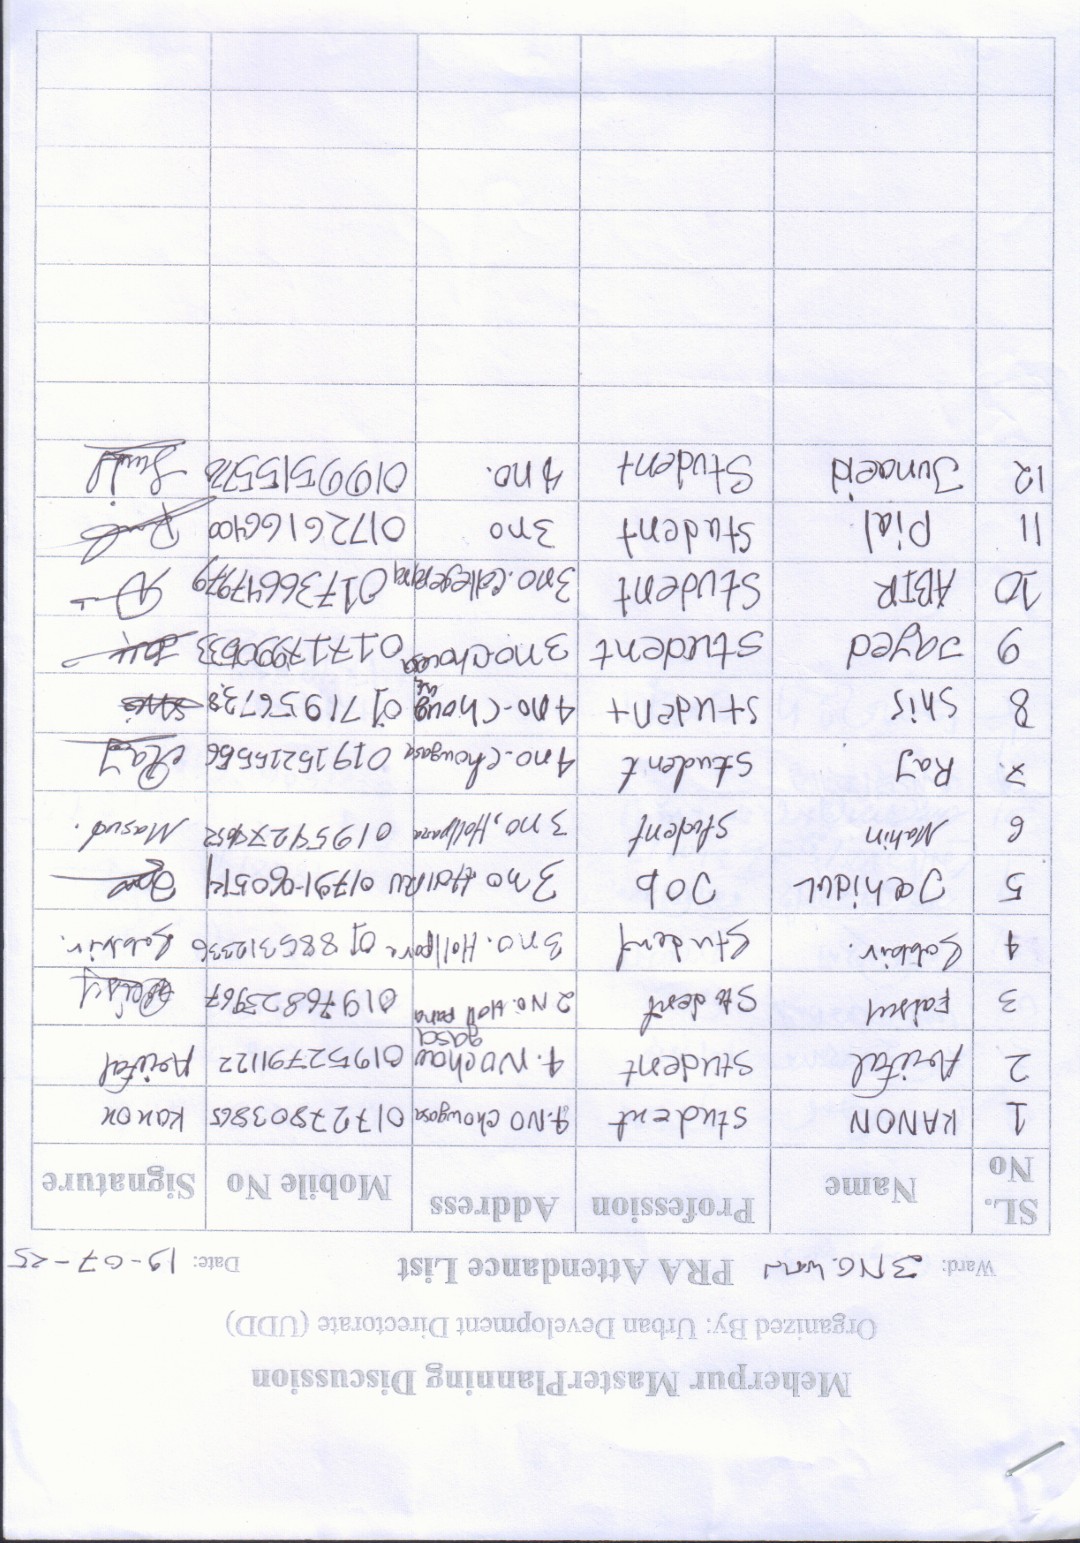 Meherpur MasterPlanning Discussion
Organized By: Urban Development Directorate (UDD)
Ward: 3 NO. ward PRA Attendance List Date: 19-07-25
SL. No Name Profession Address Mobile No Signature
1 KANON student 4.NO chowgosa 01727803865 KANON
2 Arifal student 4. NO chow gasa 01952791122 Arifal
3 student 2 No. Hall para 01976823967
4 Sabbir. Student 3 no. Hallpara 01886312236 Sabbir.
5 Jahidul Job 3 no
6 Mahin student 3 no, Hallpara Masud.
7. Raj student 4 no. chowgasa 01915215556 Raj
8 Shis student 4 no-
9 Jayed student 3 no.
10 ABIR Student 3 no. college para 01736647979
11 Pial student 3 no 01726166400
12 Junaeid Student 4 no.